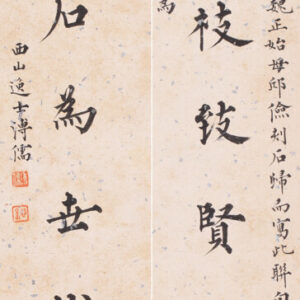 魏正始毋邱儉刻石歸而寫此聯
為
枝致賢
石為世
西山逸士溥儒